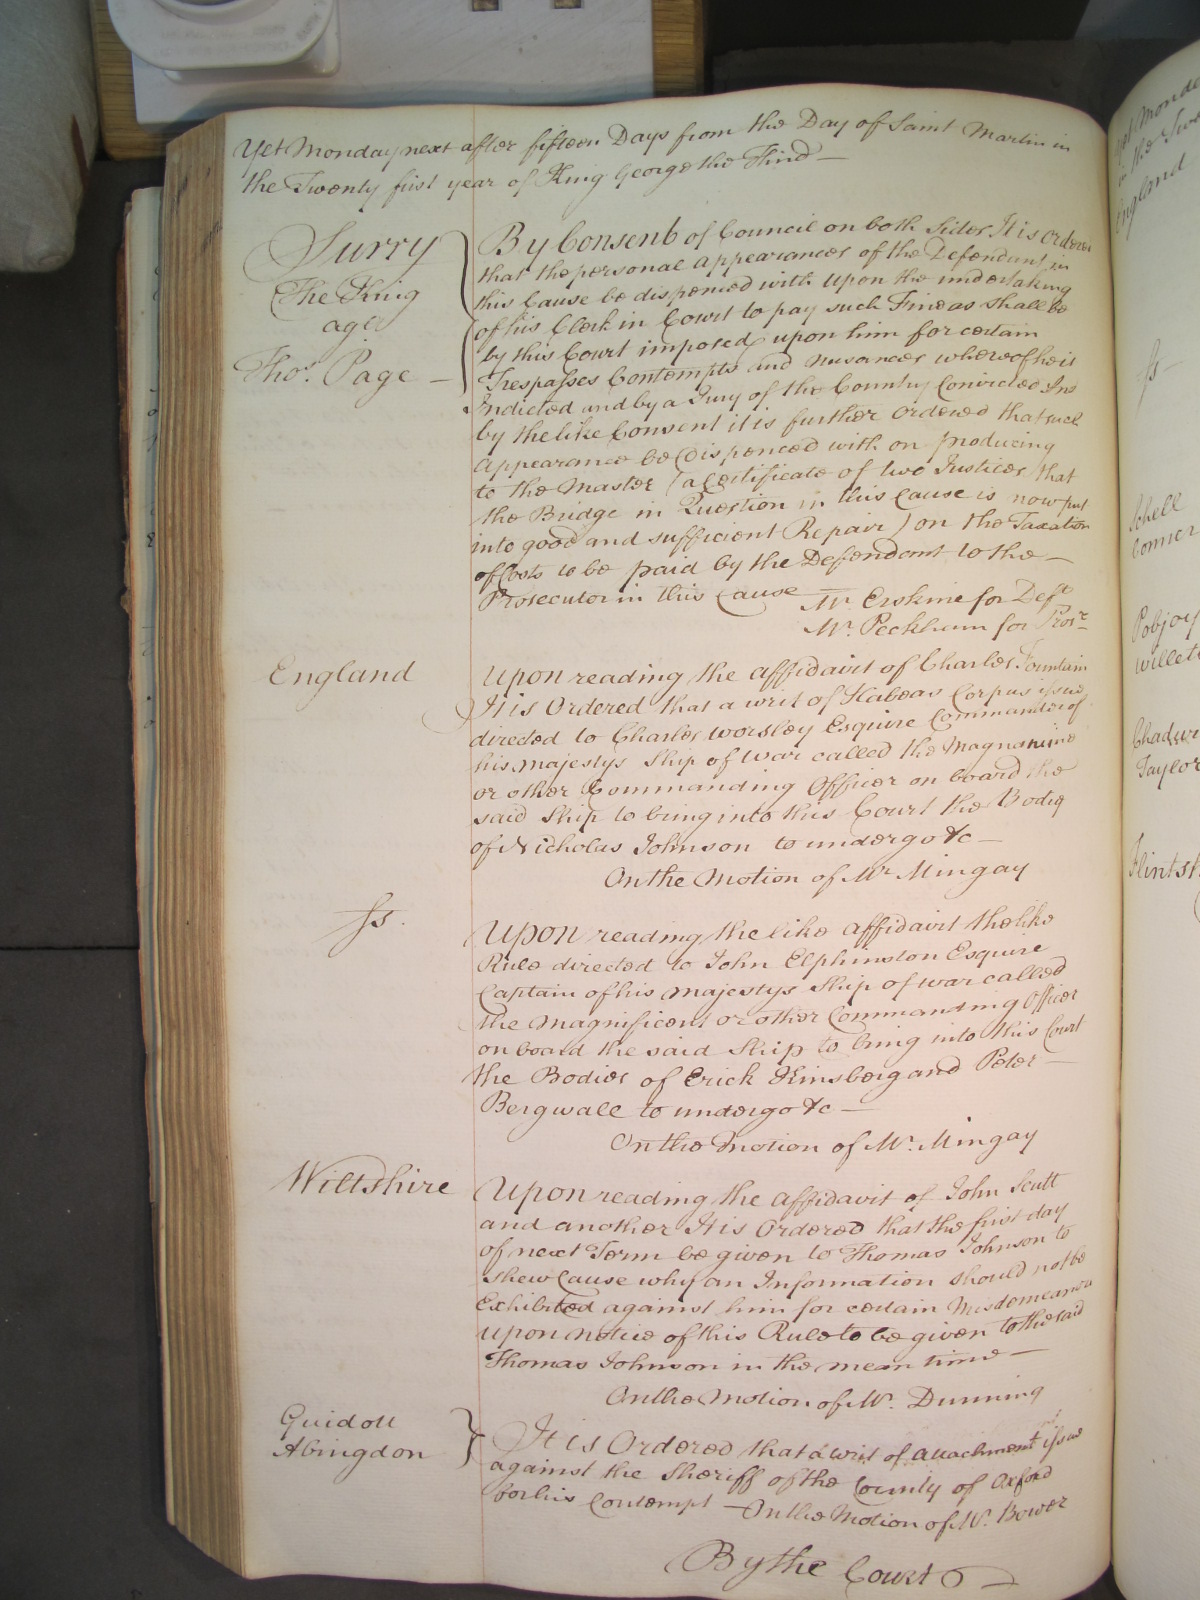 Yet Monday next after fifteen Days from the Day of Saint Martin in
the Twenty first year of King George the Third
Surry
The King
agt
Thos. Page
By Consent of Council on both Sides It is ordered
that the personal appearances of the Defendant in
this Cause be dispenced with upon the undertaking
of his Clerk in Court to pay such Fine as shall be
by this Court imposed upon him for certain
Trespasses Contempts and Nusances whereof he is
Indicted and by a Jury of the Country Convicted And
by the like Consent it is further ordered that such
appearance be dispenced with on producing
to the Master (a Certificate of two Justices that
the Bridge in Question in this Cause is now put
into good and sufficient Repair) on the Taxation
of Costs to be paid by the Defendant to the
Prosecutor in this Cause
Mr. Erskine for Deft
Mr. Peckham for Prosr
England
Upon reading the affidavit of Charles Fountain
It is Ordered that a writ of Habeas Corpus issue
directed to Charles Worsley Esquire Commander of
his majestys Ship of war called the Magnanime
or other Commanding Officer on board the
said Ship to bring into this Court the Body
of Nicholas Johnson to undergo &c
On the Motion of Mr Mingay
ss.
Upon reading the like affidavit the like
Rule directed to John Elphinston Esquire
Captain of his majestys Ship of war called
the Magnificent or other Commanding Officer
on board the said Ship to bring into this Court
the Bodies of Erick Kinsberg and Peter
Bergwall to undergo &c
On the motion of Mr. Mingay
Wiltshire
Upon reading the affidavit of John Scutt
and another It is Ordered that the first day
of next Term be given to Thomas Johnson to
shew Cause why an Information should not be
Exhibited against him for certain Misdemeanors
upon notice of this Rule to be given to the said
Thomas Johnson in the mean time
On the Motion of Mr. Dunning
Guidott
Abingdon
It is Ordered that a writ of attachment issue
against the Sheriff of the County of Oxford
for his Contempt On the Motion of Mr. Bower
By the Court
England
ss
Schell
Pobjoy
Taylor